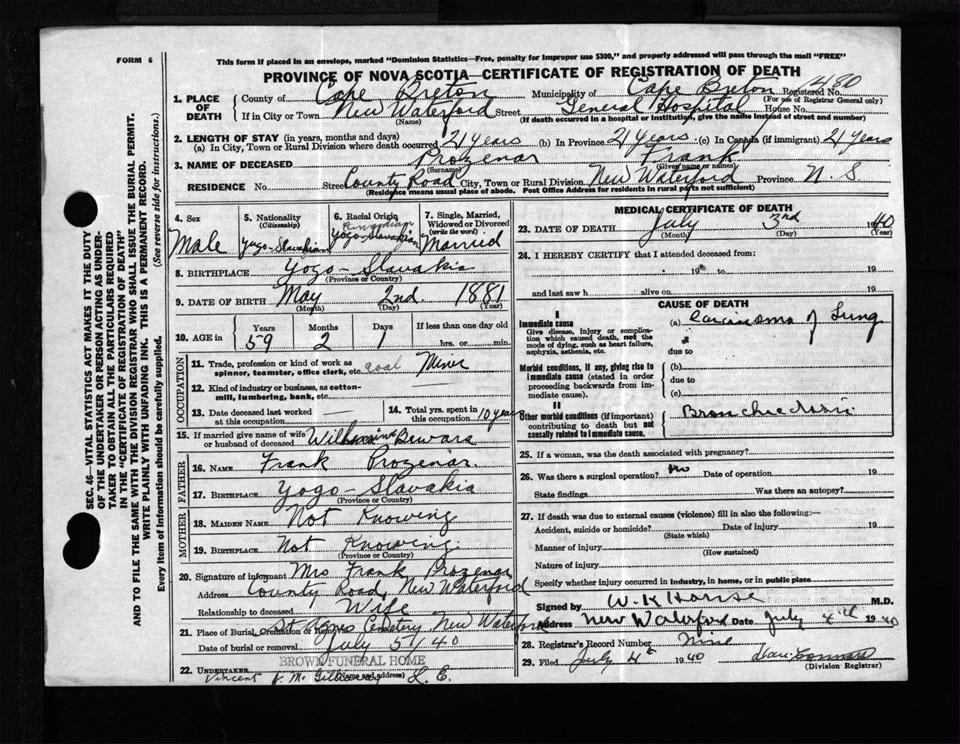 FORM 6
This form if placed in an envelope, marked "Dominion Statistics—Free, penalty for improper use $300," and properly addressed will pass through the mail "FREE"
PROVINCE OF NOVA SCOTIA—CERTIFICATE OF REGISTRATION OF DEATH
1. PLACE OF DEATH
County of Cape Breton Municipality of Cape Breton Registered No. 480
(For use of Registrar General only)
If in City or Town New Waterford Street General Hospital House No.
(Name) (If death occurred in a hospital or institution, give the name instead of street and number)
2. LENGTH OF STAY (in years, months and days)
(a) In City, Town or Rural Division where death occurred 21 years (b) In Province 21 years (c) In Canada (if immigrant) 21 years
3. NAME OF DECEASED Prozenar Frank
(Surname) (Given name or names)
RESIDENCE No. Street County Road City, Town or Rural Division New Waterford Province N. S
(Residence means usual place of abode. Post Office Address for residents in rural parts not sufficient)
4. Sex Male
5. Nationality (Citizenship) Yogo-Slavakian
6. Racial Origin Yogo-Slavakian
7. Single, Married, Widowed or Divorced (write the word) Married
8. BIRTHPLACE Yogo-Slavakia
(Province or Country)
9. DATE OF BIRTH May 2nd. 1881
(Month) (Day) (Year)
10. AGE in Years 59 Months 2 Days 1 If less than one day old hrs. or min.
OCCUPATION
11. Trade, profession or kind of work as spinner, teamster, office clerk, etc. coal Miner
12. Kind of industry or business, as cotton-mill, lumbering, bank, etc.
13. Date deceased last worked at this occupation
14. Total yrs. spent in this occupation 10 years
15. If married give name of wife or husband of deceased
FATHER
16. NAME Frank Prozenar.
17. BIRTHPLACE Yogo-Slavakia
(Province or Country)
MOTHER
18. MAIDEN NAME Not Knowing
19. BIRTHPLACE Not Knowing.
(Province or Country)
20. Signature of informant Mrs Frank Prozenar
Address County Road, New Waterford
Relationship to deceased Wife
21. Place of Burial, Cremation or Removal St Agnes Cemetery New Waterford
Date of burial or removal July 5/40
BROWN FUNERAL HOME
22. UNDERTAKER Vincent J. McGillivray
(Name and address)
MEDICAL CERTIFICATE OF DEATH
23. DATE OF DEATH July 3rd 1940
(Month) (Day) (Year)
24. I HEREBY CERTIFY that I attended deceased from:
19 to 19
and last saw h alive on 19
CAUSE OF DEATH
I
Immediate cause
Give disease, injury or complication which caused death, not the mode of dying, such as heart failure, asphyxia, asthenia, etc.
(a) Carcinoma of Lung
due to
Morbid conditions, if any, giving rise to immediate cause (stated in order proceeding backwards from immediate cause).
(b)
due to
(c)
II
Other morbid conditions (if important) contributing to death but not causally related to immediate cause.
25. If a woman, was the death associated with pregnancy?
26. Was there a surgical operation? no Date of operation 19
State findings Was there an autopsy?
27. If death was due to external causes (violence) fill in also the following:—
Accident, suicide or homicide? Date of injury 19
(State which)
Manner of injury
(How sustained)
Nature of injury
Specify whether injury occurred in industry, in home, or in public place
Signed by M.D.
Address New Waterford Date July 4th 1940
28. Registrar's Record Number Nine
29. Filed July 4th 1940
(Division Registrar)
SEC. 46—VITAL STATISTICS ACT MAKES IT THE DUTY
OF THE UNDERTAKER OR PERSON ACTING AS UNDER-
TAKER TO OBTAIN ALL THE PARTICULARS REQUIRED
IN THE "CERTIFICATE OF REGISTRATION OF DEATH"
AND TO FILE THE SAME WITH THE DIVISION REGISTRAR WHO SHALL ISSUE THE BURIAL PERMIT.
WRITE PLAINLY WITH UNFADING INK. THIS IS A PERMANENT RECORD.
Every item of information should be carefully supplied. (See reverse side for instructions).